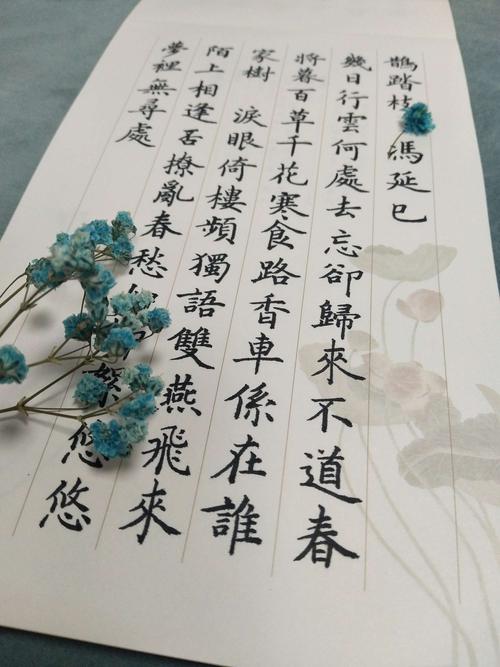 鵲踏枝 馮延巳
幾日行雲何處去忘卻歸來不道春
將暮百草千花寒食路香車係在誰
家樹 淚眼倚樓頻獨語雙燕飛來
陌上相逢否撩亂春愁如絮悠悠
夢裡無尋處